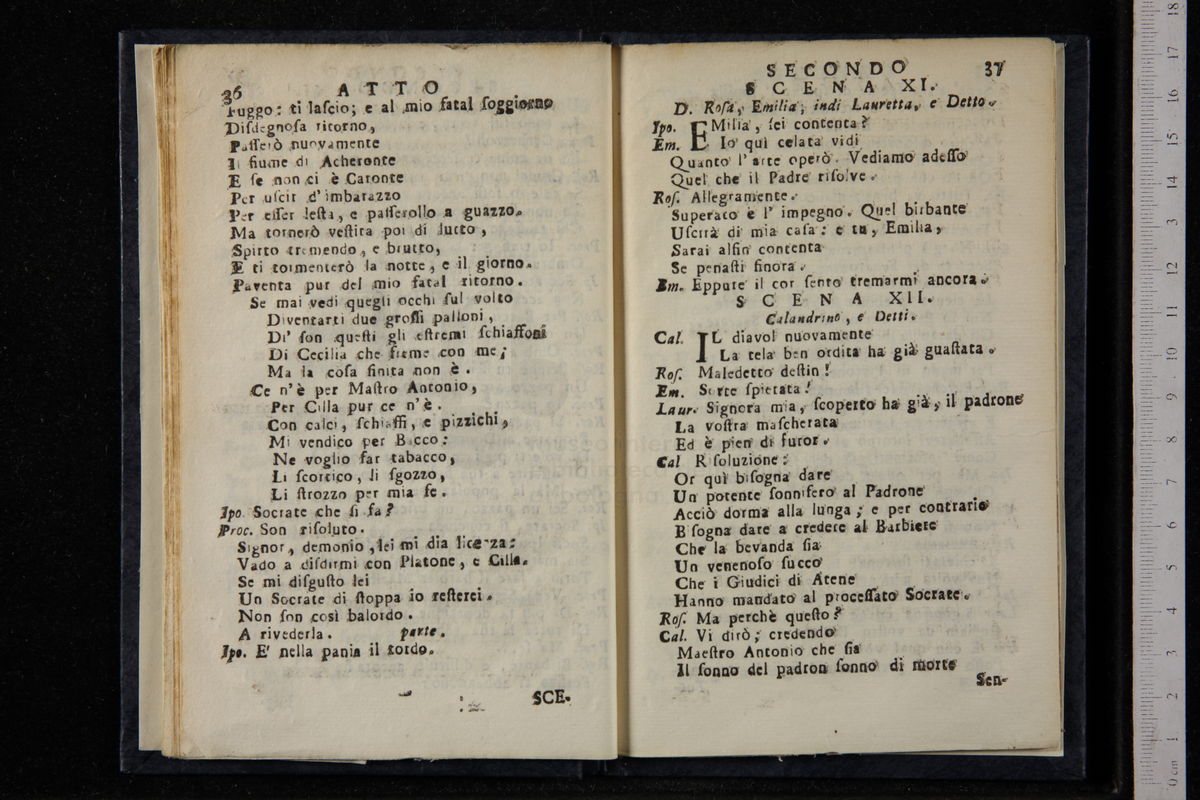 36 ATTO
Fuggo: ti laſcio; e al mio fatal ſoggiorno
Diſdegnoſa ritorno,
Paſſerò nuovamente
Il fiume di Acheronte
E ſe non ci è Caronte
Per uſcir d'imbarazzo
Per eſſer leſta, e paſſerollo a guazzo.
Ma tornerò veſtita poi di lutto,
Spirto tremendo, e brutto,
E ti tormenterò la notte, e il giorno.
Paventa pur del mio fatal ritorno.
Se mai vedi quegli occhi ſul volto
Diventarti due groſſi palloni,
Di' ſon queſti gli eſtremi ſchiaffoni
Di Cecilia che freme con me;
Ma la coſa finita non è.
Ce n'è per Maſtro Antonio,
Per Cilla pur ce n'è.
Con calci, ſchiaffi, e pizzichi,
Mi vendico per Bacco:
Ne voglio far tabacco,
Li ſcortico, li ſgozzo,
Li ſtrozzo per mia fe.
Ipo. Socrate che ſi fa?
Proc. Son riſoluto.
Signor, demonio, lei mi dia licenza:
Vado a diſdirmi con Platone, e Cilla.
Se mi diſguſto lei
Un Socrate di ſtoppa io reſterei.
Non ſon così balordo.
A rivederla. parte.
Ipo. E' nella pania il tordo.
SCE-
SECONDO 37
SCENA XI.
D. Roſa, Emilia; indi Lauretta, e Detto.
Ipo. EMilia, ſei contenta?
Em. Io quì celata vidi
Quanto l'arte operò. Vediamo adeſſo
Quel che il Padre riſolve.
Roſ. Allegramente.
Superato è l'impegno. Quel birbante
Uſcirà di mia caſa: e tu, Emilia,
Sarai alfin contenta
Se penaſti finora.
Em. Eppure il cor ſento tremarmi ancora.
SCENA XII.
Calandrino, e Detti.
Cal. IL diavol nuovamente
La tela ben ordita ha già guaſtata.
Roſ. Maledetto deſtin!
Em. Sorte ſpietata!
Laur. Signora mia, ſcoperto ha già, il padrone
La voſtra maſcherata
Ed è pien di furor.
Cal Riſoluzione:
Or quì biſogna dare
Un potente ſonnifero al Padrone
Acciò dorma alla lunga; e per contrario
Biſogna dare a credere al Barbiere
Che la bevanda ſia
Un venenoſo ſucco
Che i Giudici di Atene
Hanno mandato al proceſſato Socrate.
Roſ. Ma perchè queſto?
Cal. Vi dirò; credendo
Maeſtro Antonio che ſia
Il ſonno del padron ſonno di morte
Sen-